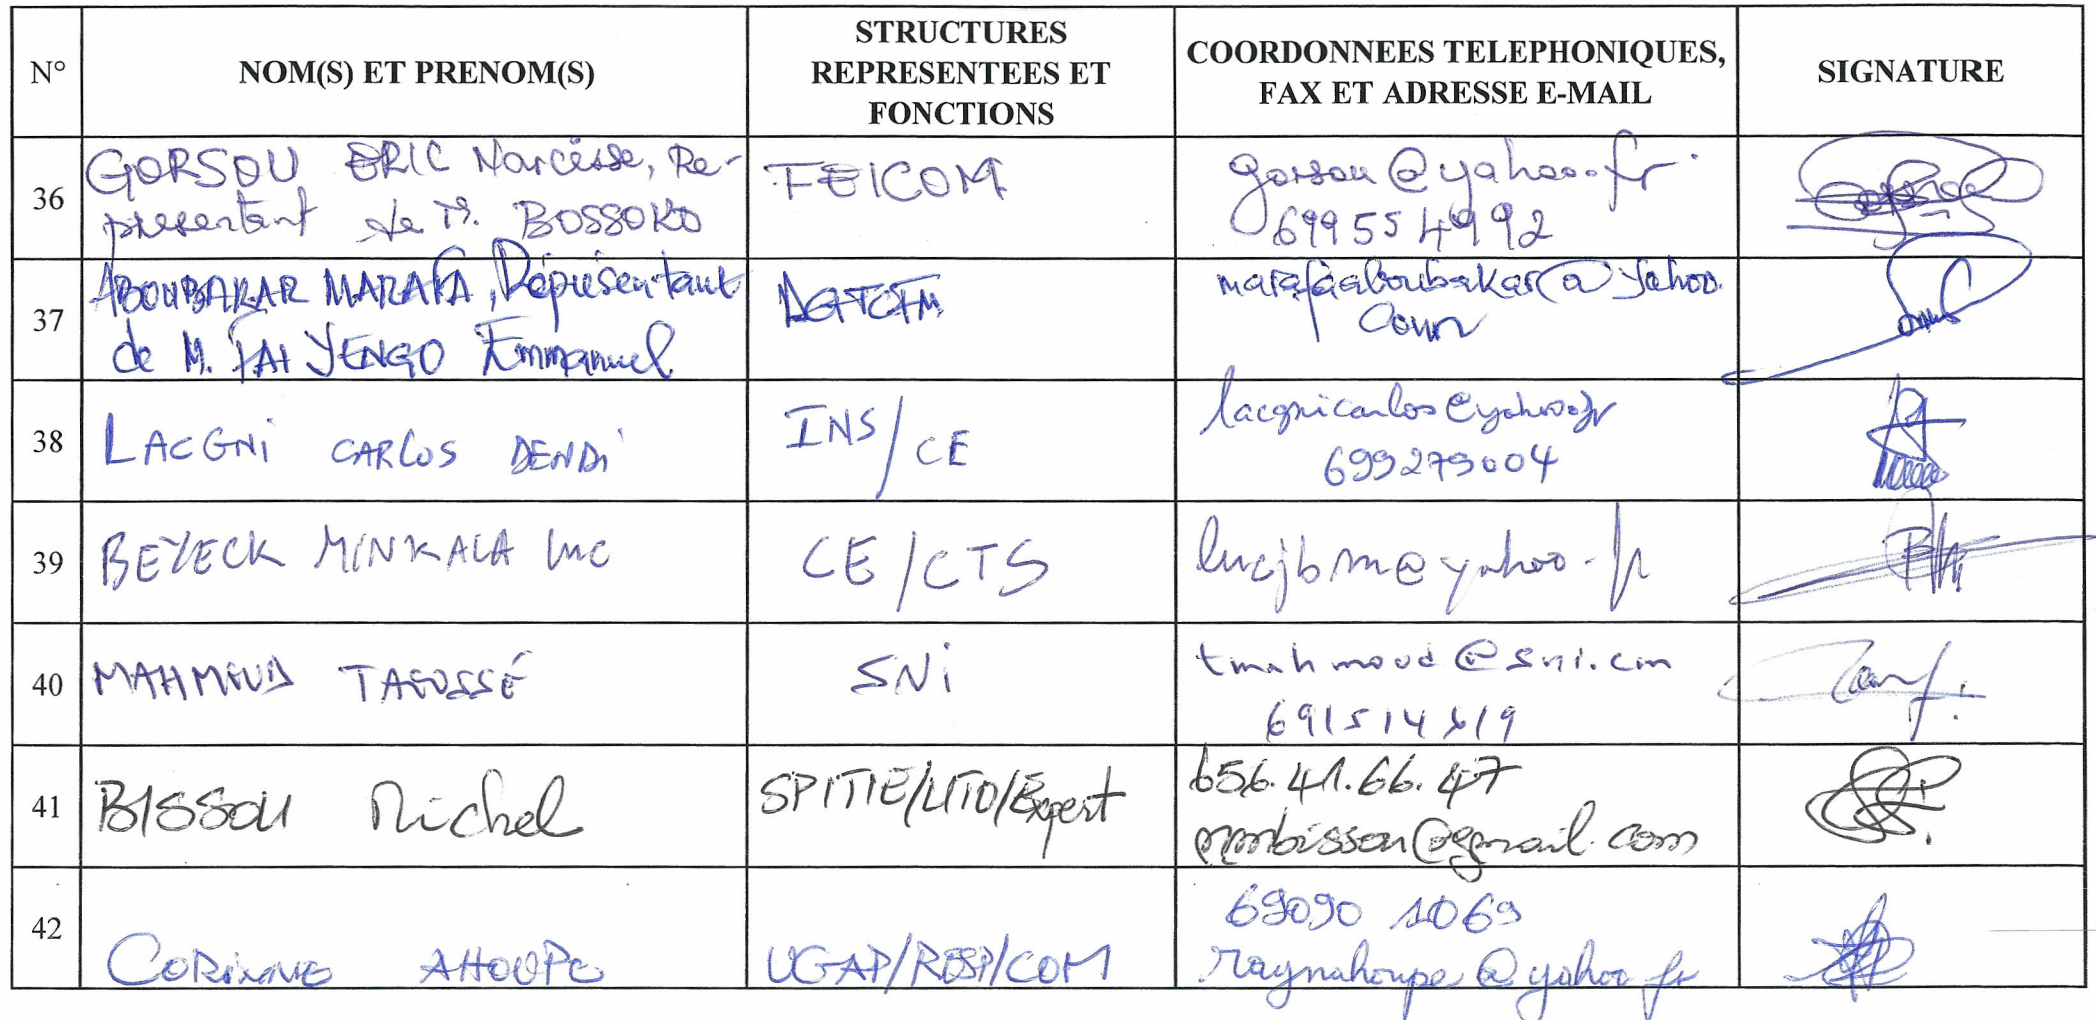 N°
NOM(S) ET PRENOM(S)
STRUCTURES
REPRESENTEES ET
FONCTIONS
COORDONNEES TELEPHONIQUES,
FAX ET ADRESSE E-MAIL
SIGNATURE
36
GORSOU ERIC Narcisse, Re-
présentant de M. BOSSOKO
FEICOM
gorsou@yahoo.fr
699554992
37
ABOUBAKAR MARAFA, Représentant
de M. FAI YENGO Emmanuel
marafaaboubakar@yahoo.
com
38
LACGNi CARLOS DENDi
INS/CE
lacgnicarlos@yahoo.fr
699279004
39
BEYECK MINKALA Luc
CE/CTS
lucjbm@yahoo.fr
40
MAHMOUD TAFOSSÉ
SNi
tmahmoud@sni.cm
41
BISSOU Michel
656.41.66.47
mmbissou@gmail.com
42
CORINNE AHOUPE
UGAP/RESP/COM
69090 1069
raynahoupe@yahoo.fr